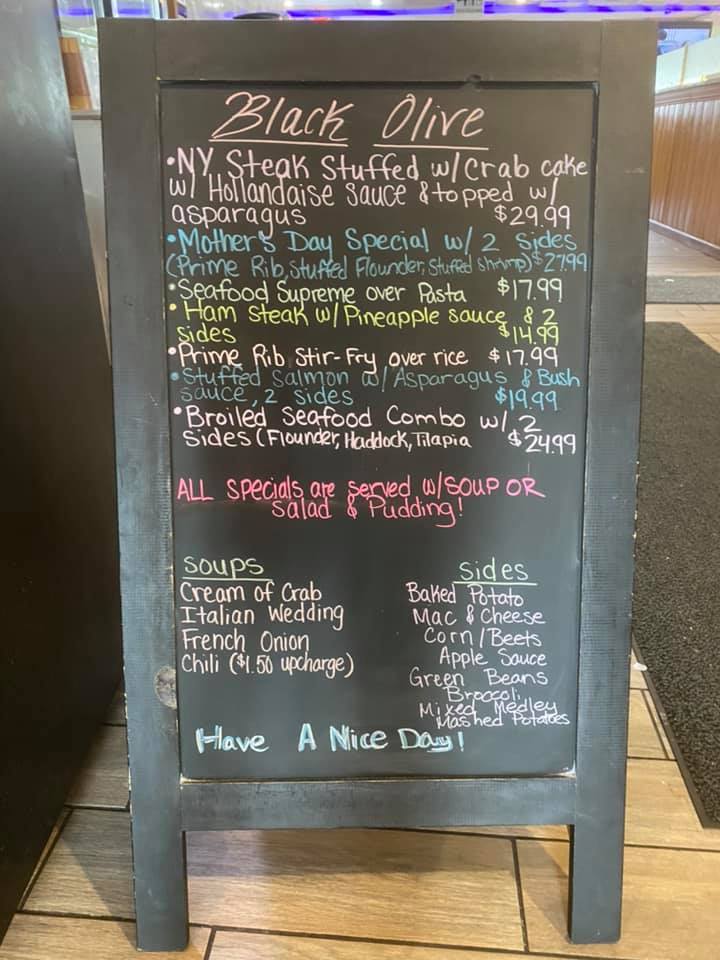 Black Olive
•NY Steak Stuffed w/Crab cake
w/ Hollandaise sauce & topped w/
asparagus $29.99
•Mother's Day Special w/ 2 sides
(Prime Rib, Stuffed Flounder, Stuffed Shrimp) $27.99
•Seafood Supreme over Pasta $17.99
•Ham Steak w/Pineapple sauce & 2
sides $14.99
•Prime Rib Stir-Fry over rice $17.99
•Stuffed Salmon w/Asparagus & Bush
sauce, 2 sides $19.99
•Broiled Seafood Combo w/ 2
sides (Flounder, Haddock, Tilapia $24.99
ALL specials are served w/SOUP OR
salad & Pudding!
soups
Cream of Crab
Italian Wedding
French Onion
Chili ($1.50 upcharge)
sides
Baked Potato
Mac & Cheese
Corn/Beets
Apple Sauce
Green Beans
Broccoli
Mixed Medley
Mashed Potatoes
Have A Nice Day!